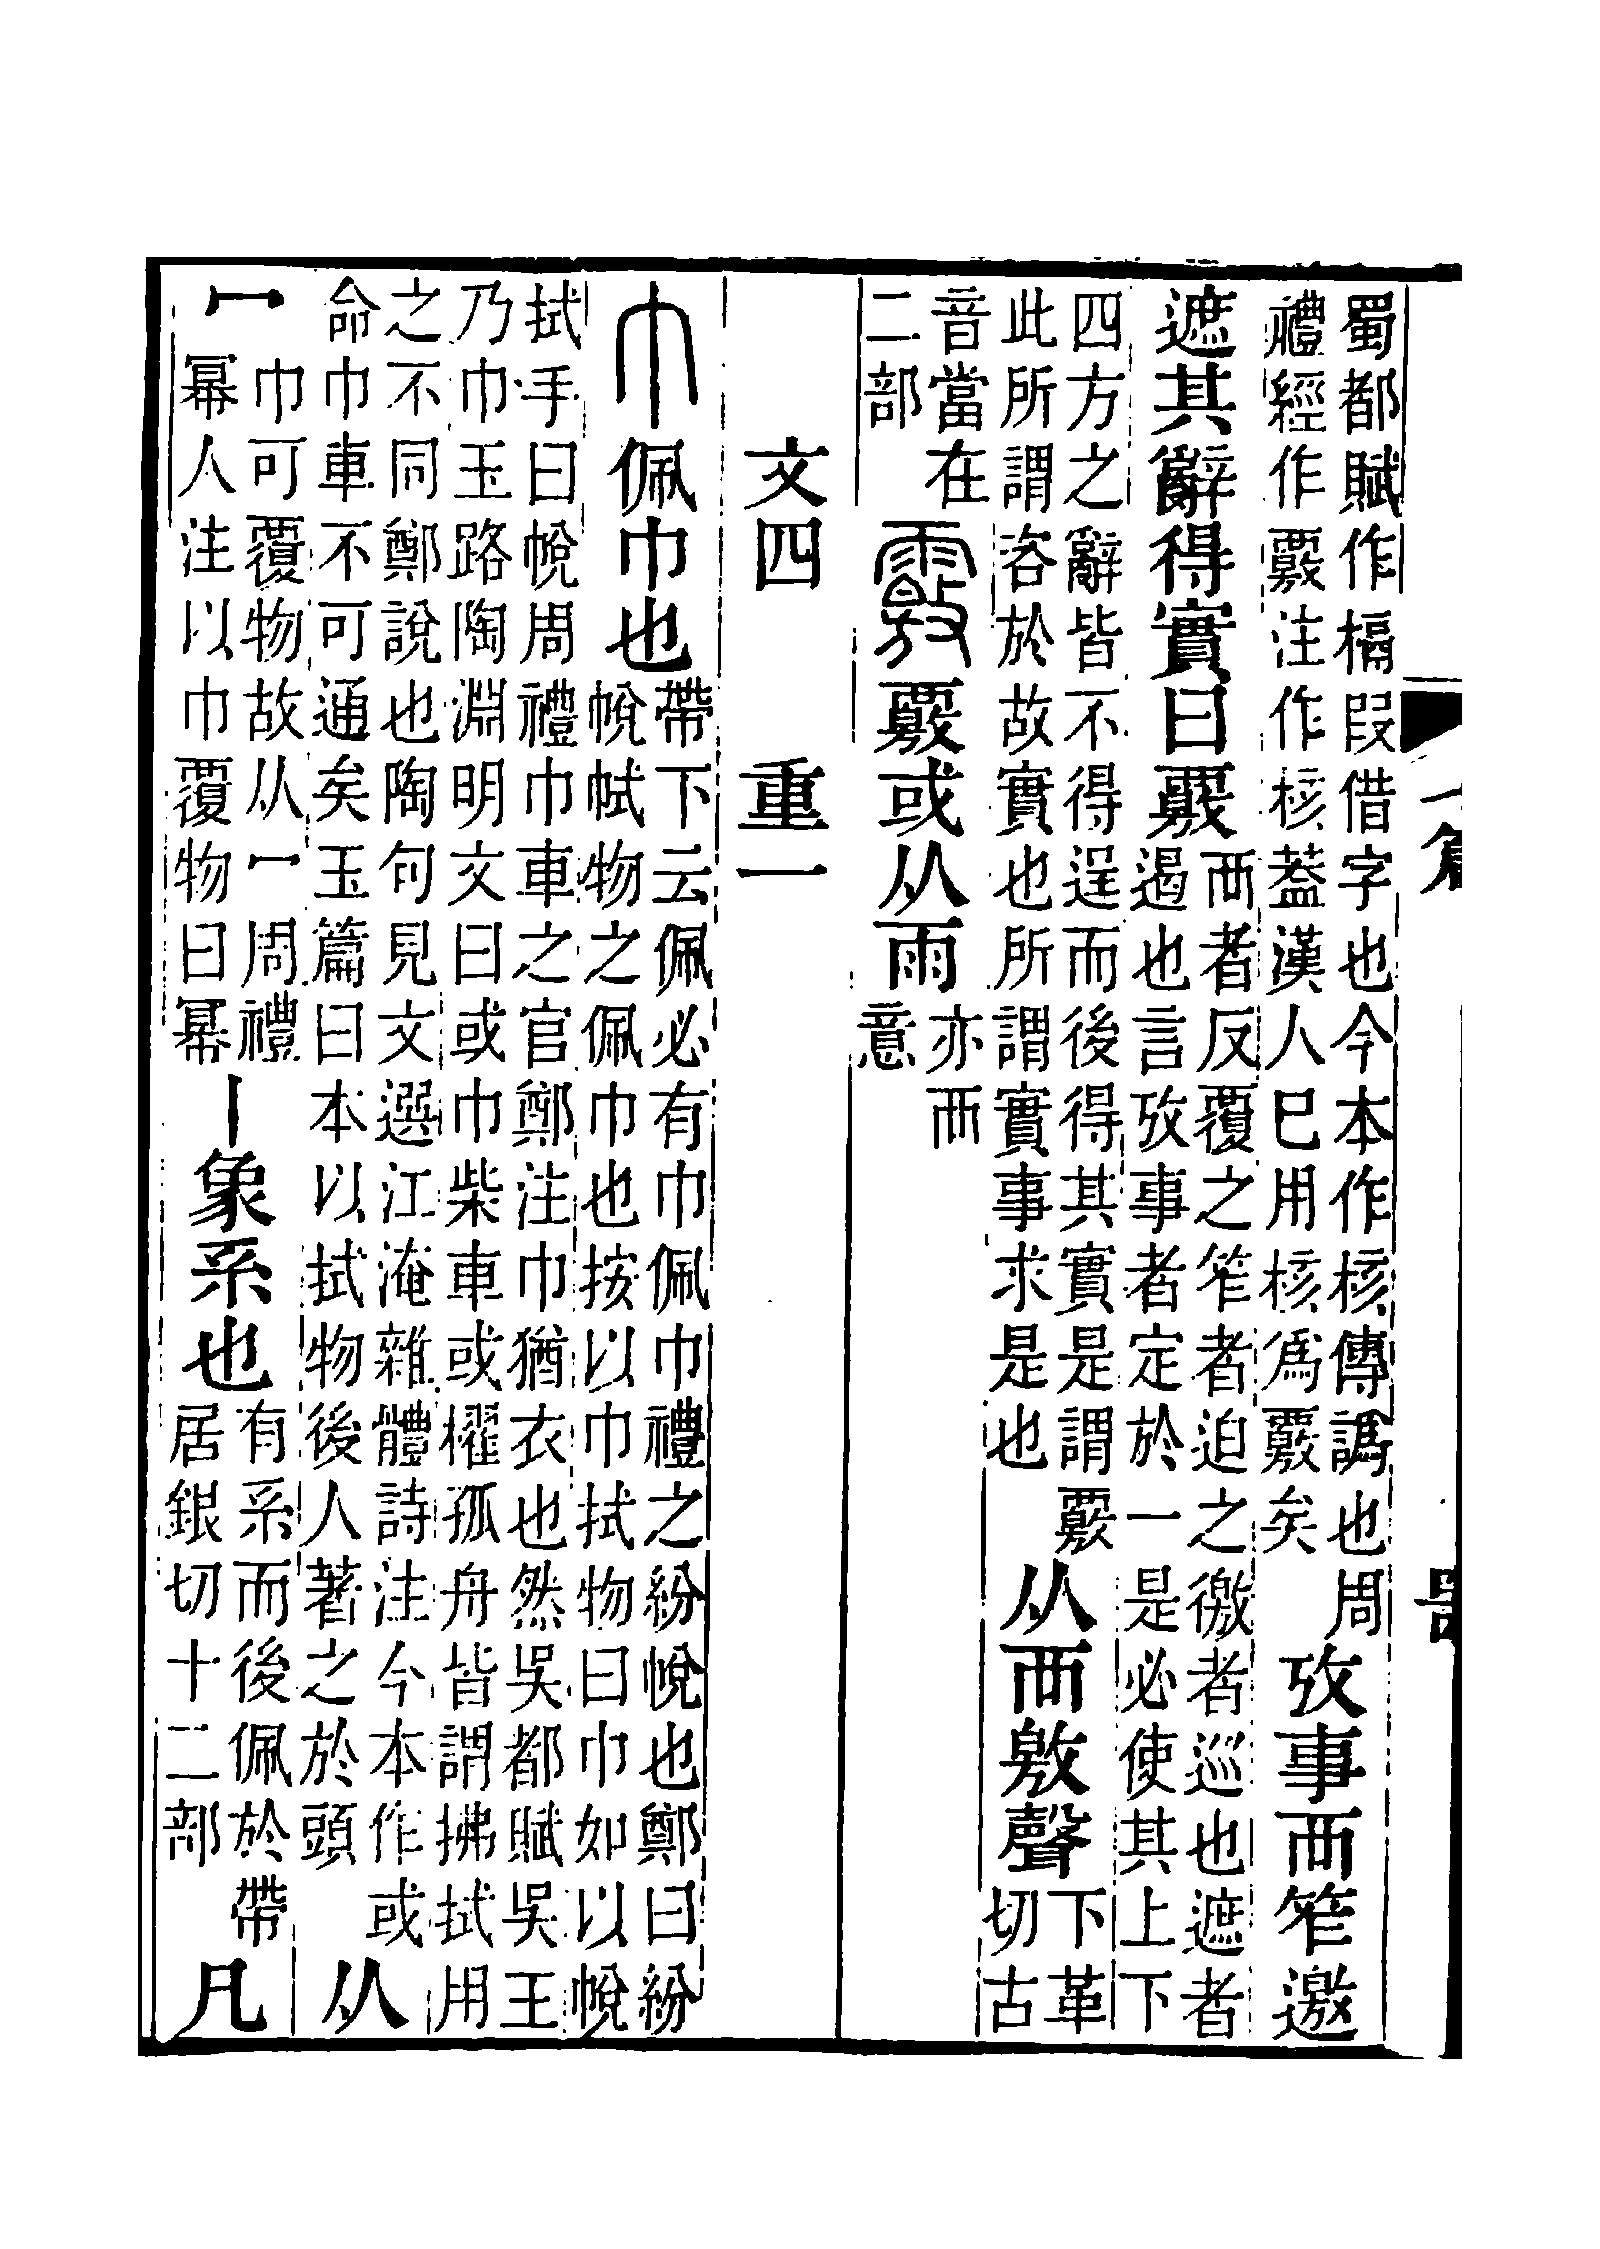 蜀都賦作槅叚借字也今本作核傳譌也周
禮經作覈注作核葢漢人巳用核爲覈矣
攷事襾笮邀
遮其辭得實曰覈
襾者反覆之笮者迫之徼者巡也遮者
遏也言攷事者定於一是必使其上下
四方之辭皆不得逞而後得其實是謂覈
此所謂咨於故實也所謂實事求是也
从襾敫聲
下革
切古
音當在
二部
覈或从雨
亦襾
意
文四　重一
巾
佩巾也
帶下云佩必有巾佩巾禮之紛帨也鄭曰紛
帨拭物之佩巾也按以巾拭物曰巾如以帨
拭手曰帨周禮巾車之官鄭注巾猶衣也然吳都賦吳王
乃巾玉路陶淵明文曰或巾柴車或櫂孤舟皆謂拂拭用
之不同鄭說也陶句見文選江淹雜體詩注今本作或
命巾車不可通矣玉篇曰本以拭物後人著之於頭
从
冖
巾可覆物故从冖周禮
冪人注以巾覆物曰冪
丨象系也
有系而後佩於帶
居銀切十二部
凡